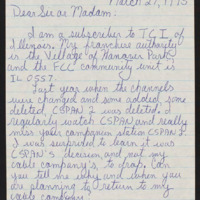 March 27, 1995
Dear Sir or Madam:
I am a subscriber to TCI of
Illinois. My franchise authority
is the Village of Hanover Park
and the FCC community unit is
IL 0557.
Last year when the channels
were changed and some added, some
deleted, CSPAN 2 was deleted. I
regularly watch CSPAN and really
miss your companion station CSPAN 2.
I was surprised to learn it was
CSPAN's decision, and not my
cable company's, to drop. Can
you tell me why and when you
are planning to return to my
cable company